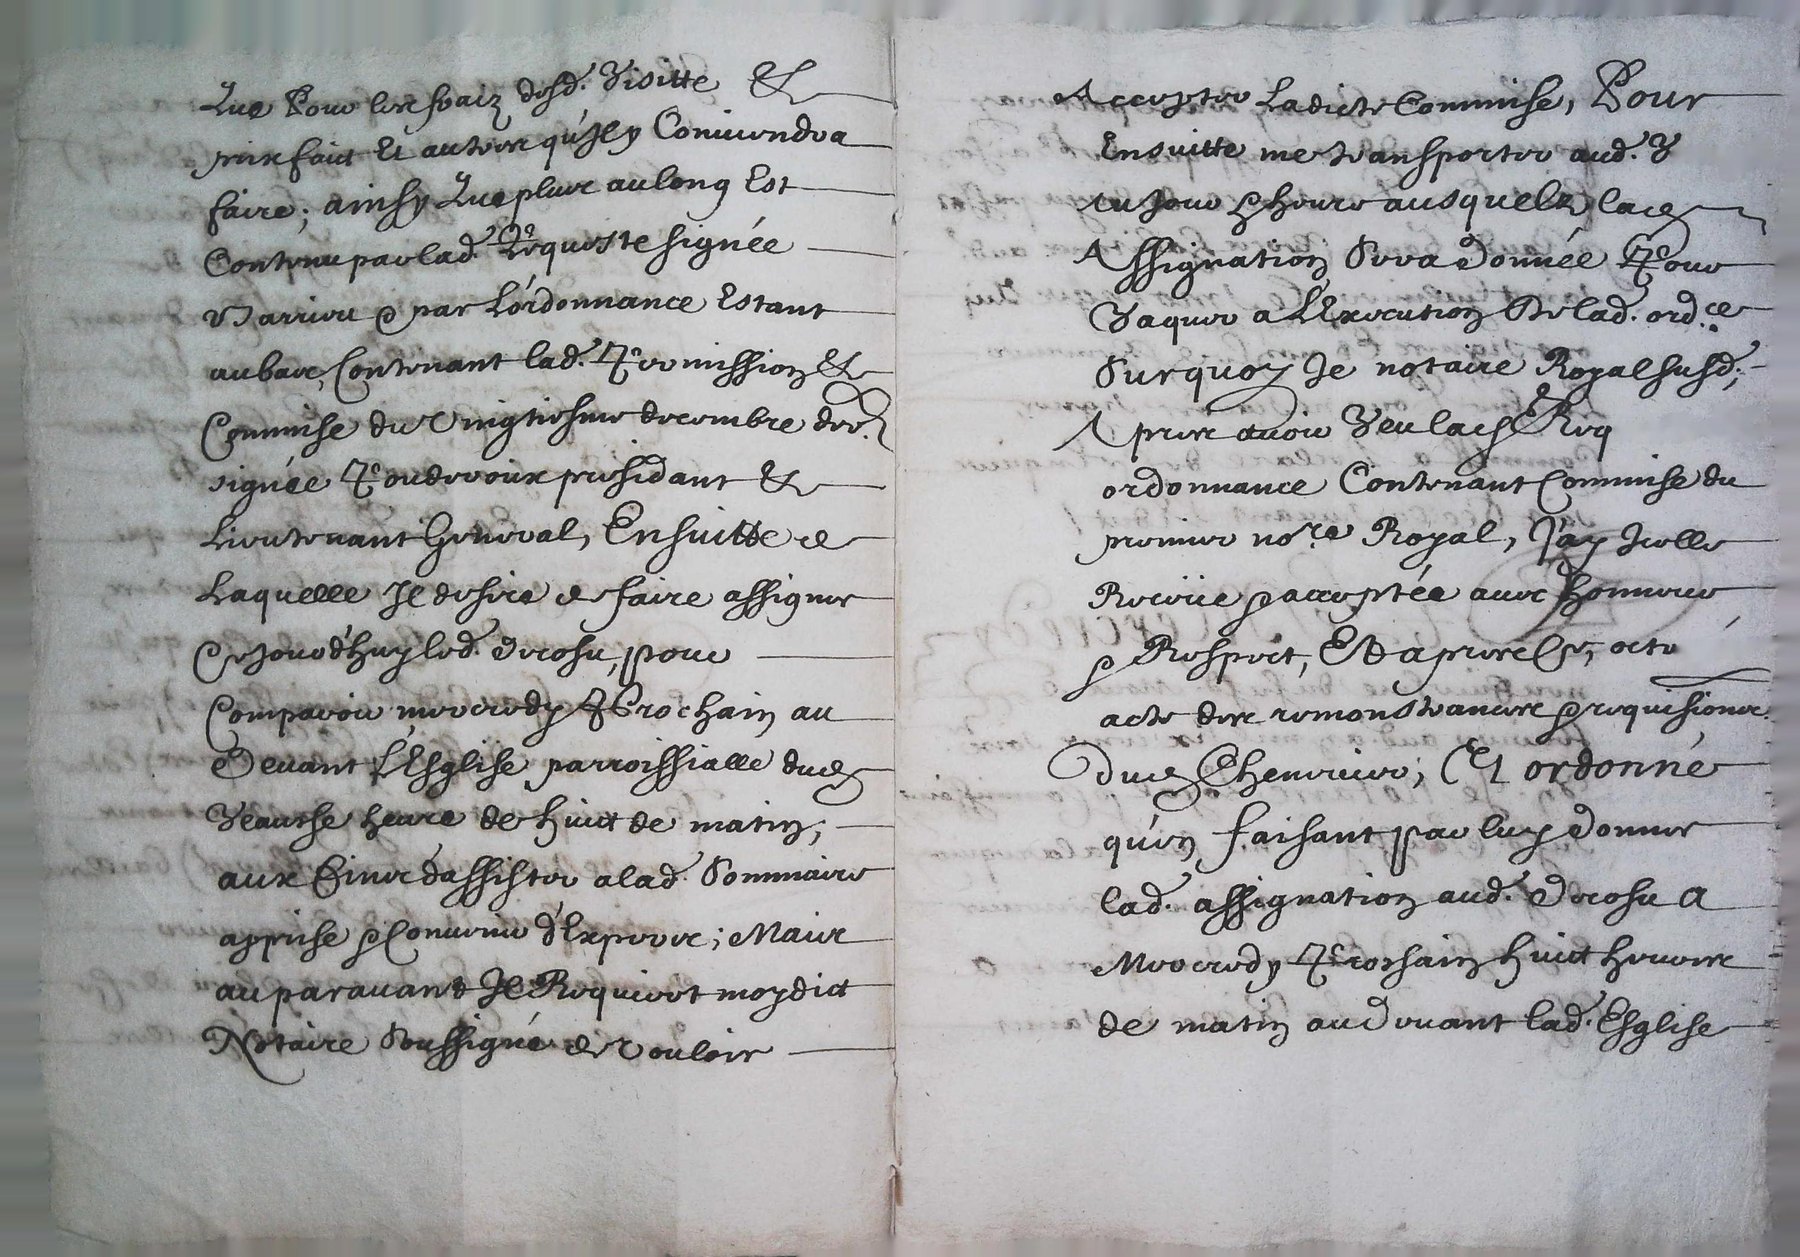 Que Pour les fraiz desd. Visitte &
prix faict Et autres qu'Jl y Conviendra
faire; ainsy Que plus au long Est
Contenu par lad. Requeste signée
par L'ordonnance Estant
au bas, Contenant lad. Permission &
Commise du Vingtiesme decembre der.
signée presidant &
Lieutenant General, Ensuitte de
Laquelle Jl desire de faire assigner
Ce Jourd'huy led. pour
Comparoir mercredy Prochain au
Devant L'Esglise parroissialle dud
heure de huict de matin;
aux fins d'assister a lad. Sommaire
apprise & Convenir d'Expers; Mais
au paravant Jl Requiert moydict
Notaire Soussigné de Vouloir
Accepter Ladicte Commise, Pour
Ensuitte me transporter aud. V
au Jour & heure ausquelz lad
Assignation Sera Donnée Pour
Vaquer a L'Execution De lad. ord.ce
Surquoy Je notaire Royal susd;
Apres avoir Veu lad Req
ordonnance Contenant Commise du
premier no.re Royal, J'ay Jcelle
Receüe & acceptée avec Honneur
& Respect, Et apres Ce, octe
acte des remonstrances & requisitions
Dud Et ordonné
qu'en faisant par luy Donner
lad. assignation aud. A
Mercredy Prochain huict heures
de matin au Devant lad. Esglise